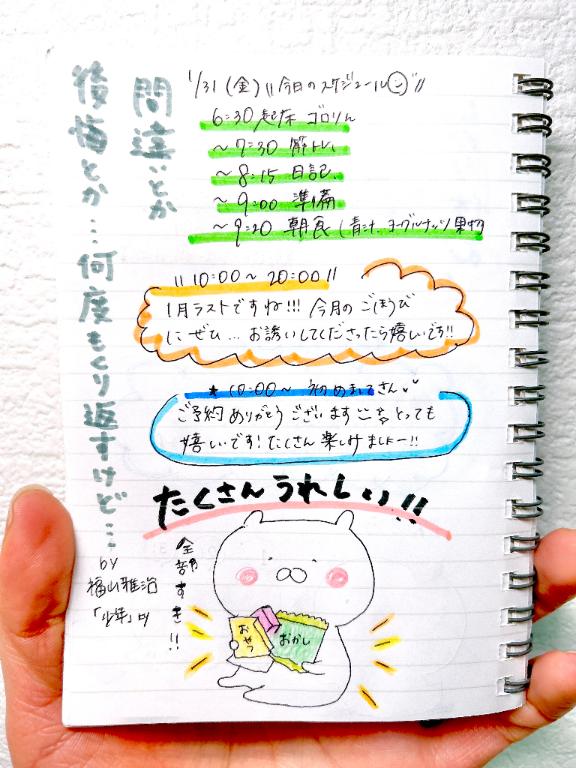 1/31(金)"今日のスケジュール"
6:30起床 ゴロりん
~7:30 筋トレ
~8:15 日記
~9:00 準備
~9:20 朝食(青汁、ヨーグルナッツ果物
"10:00~20:00"
1月ラストですね!!! 今月のごほうび
にぜひ…お誘いしてくださったら嬉しいです!!
★10:00~ 初めましてさん
ご予約ありがとうございます とっても
嬉しいです!たくさん楽しみましょー!!
たくさんうれしい!!
全部すき!!
おやつ
おかし
間違いとか
後悔とか…何度もくり返すけど…
by
福山雅治
「少年」より